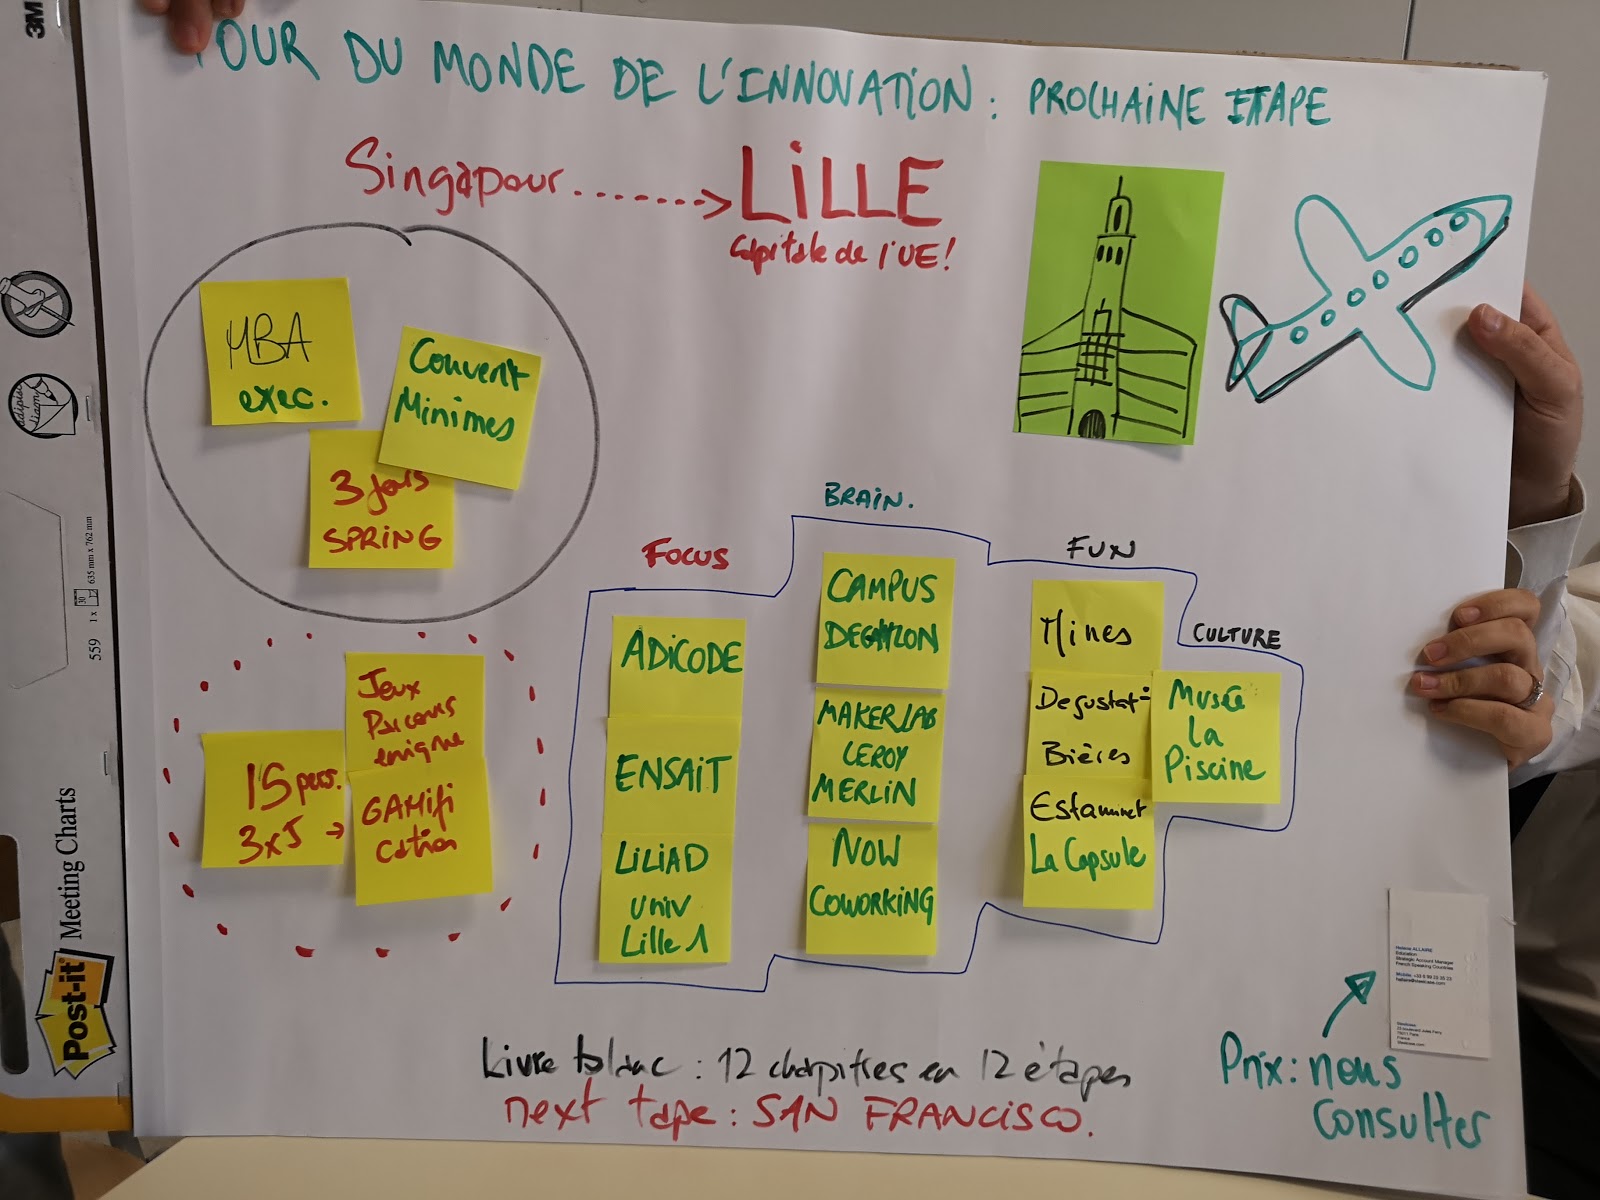 TOUR DU MONDE DE L'INNOVATION : PROCHAINE ETAPE
Singapour ........> LILLE
Capitale de l'UE!
MBA
exec.
Couvent
Minimes
3 jours
SPRING
15 pers.
3xJ →
Jeux
Parcours
enigme
GAMifi
cation
FOCUS
ADICODE
ENSAIT
LILIAD
Univ
Lille 1
BRAIN.
CAMPUS
DECATHLON
MAKERLAB
LEROY
MERLIN
NOW
COWORKING
FUN
Mines
Degustat°
Bières
Estaminet
La Capsule
CULTURE
Musée
La
Piscine
Livre blanc : 12 chapitres en 12 étapes
next tape : SAN FRANCISCO.
Prix : nous
consulter
Helene ALLAIRE
Education
Strategic Account Manager
French Speaking Countries
Steelcase.com
3M
559
1 x 30
635 mm x 762 mm
Post-it
Meeting Charts